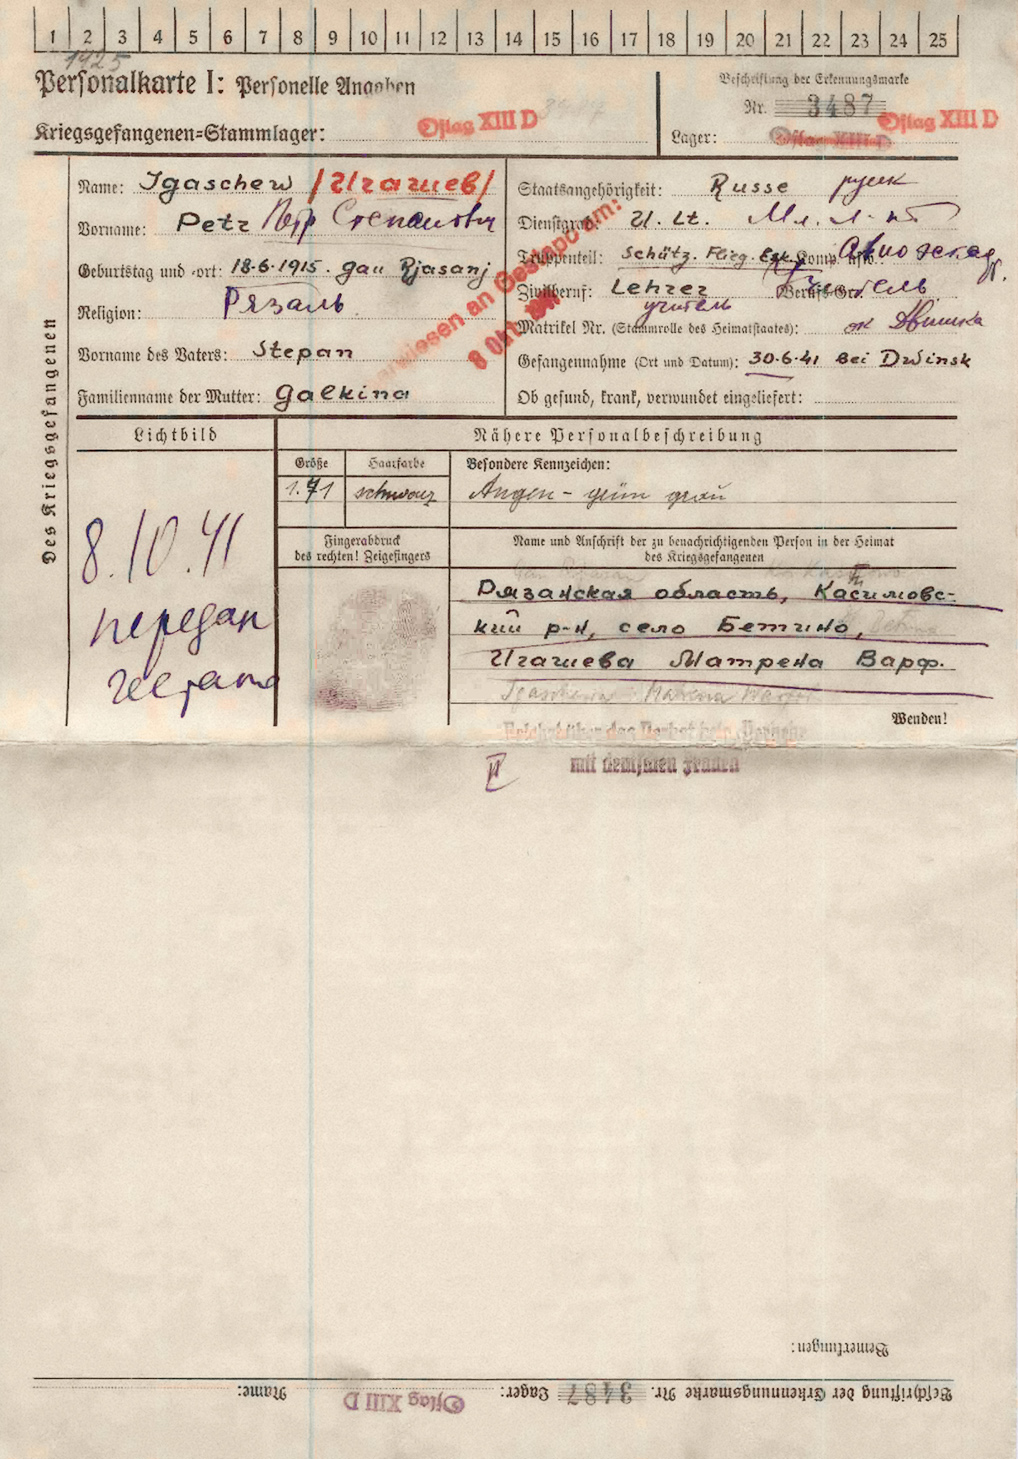 1 2 3 4 5 6 7 8 9 10 11 12 13 14 15 16 17 18 19 20 21 22 23 24 25
1925
Personalkarte I: Personelle Angaben
Beschriftung der Erkennungsmarke
Nr. 3487
Kriegsgefangenen-Stammlager: Oflag XIII D
Lager: Oflag XIII D Oflag XIII D
Des Kriegsgefangenen
Name: Igaschew /Игашев/
Vorname: Petr Петр Степанович
Geburtstag und -ort: 18.6.1915. gau Rjasanj
Religion: Рязань
Vorname des Vaters: Stepan
Familienname der Mutter: Galkina
Staatsangehörigkeit: Russe русск
Dienstgrad: U. Lt. Мл. л-нт
Truppenteil: Schütz. Flieg. Esk. Komp. usw.: Авиоэскад
Zivilberuf: Lehrer Berufs-Gr.: учитель
учитель
Matrikel Nr. (Stammrolle des Heimatstaates): ок Двинска
Gefangennahme (Ort und Datum): 30.6.41 bei Dwinsk
Ob gesund, krank, verwundet eingeliefert:
überwiesen an Gestapo am:
8 Okt. 1941
Lichtbild
Nähere Personalbeschreibung
Größe Haarfarbe Besondere Kennzeichen:
1.71 schwarz Augen - grün grau
Fingerabdruck
des rechten! Zeigefingers
Name und Anschrift der zu benachrichtigenden Person in der Heimat
des Kriegsgefangenen
8.10.41
передан
гестапо
Рязанская область, Касимовс-
кий р-н, село Бетино,
Игашева Матрена Варф.
Wenden!
mit deutschen Frauen
Bemerkungen:
Beschriftung der Erkennungsmarke Nr. 3487 Lager: Oflag XIII D Name: